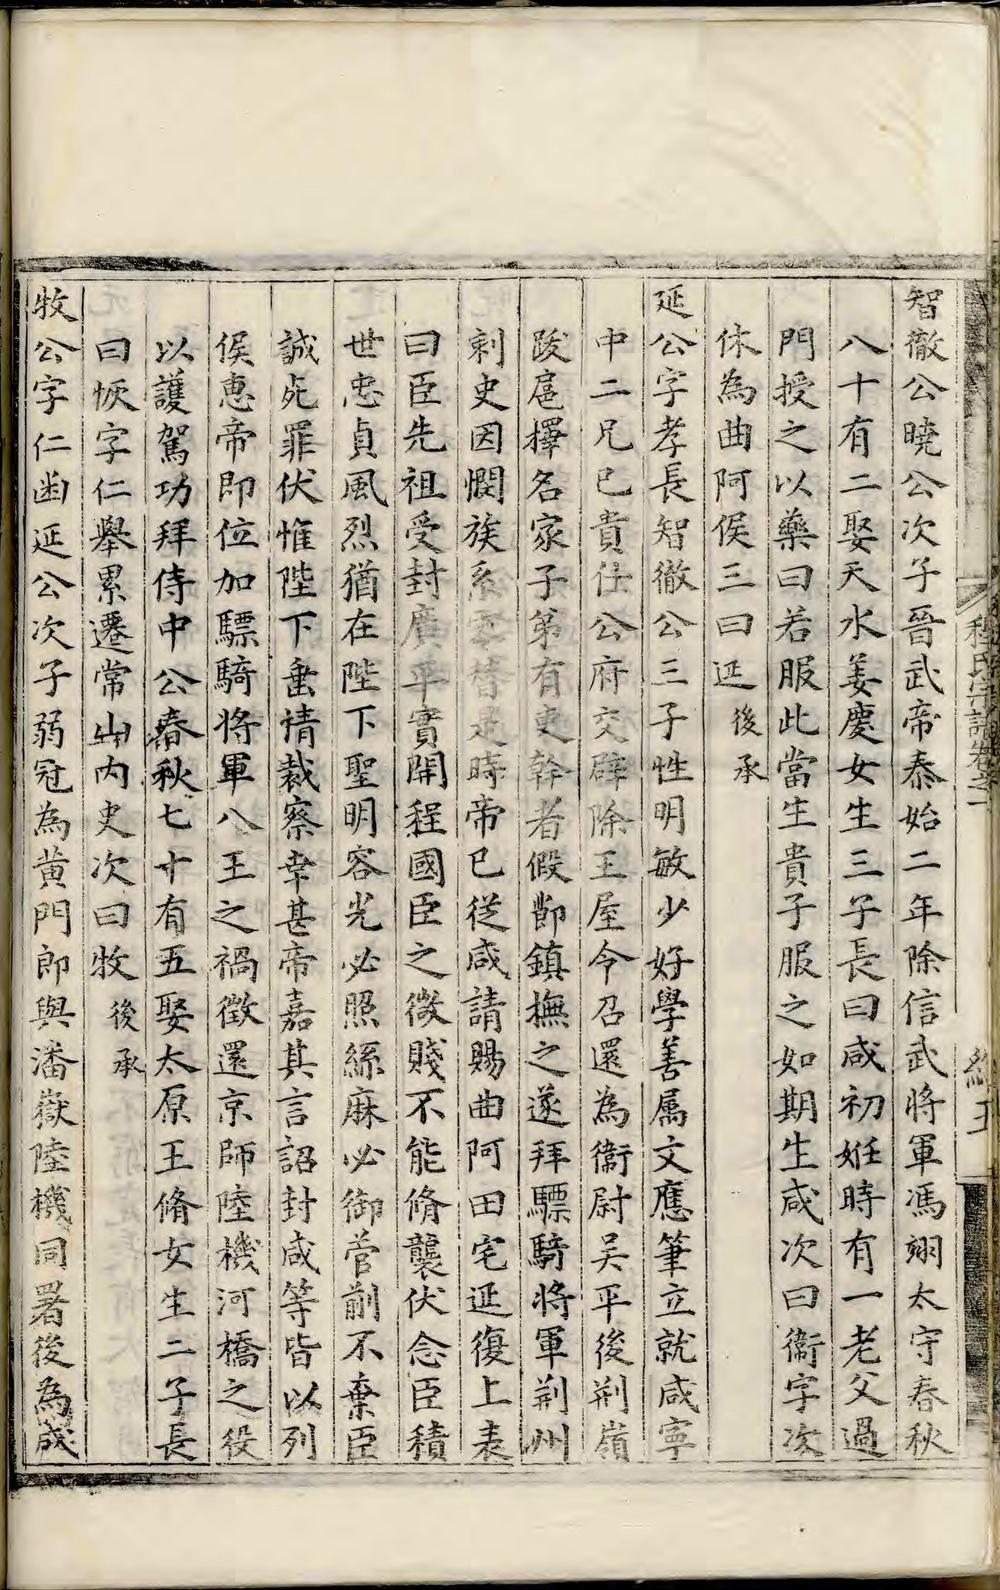 智徹公曉公次子晉武帝泰始二年除信武將軍馮翊太守春秋
八十有二娶天水姜慶女生三子長曰咸初姙時有一老父過
門授之以藥曰若服此當生貴子服之如期生咸次曰衞字次
休為曲阿侯三曰延後承
延公字孝長智徹公三子性明敏少好學善属文應筆立就咸寧
中二兄已貴仕公府交辟除王屋令召還為衞尉吴平後荆嶺
跋扈擇名家子第有吏幹者假節鎮撫之遂拜驃騎將軍荆州
刺史因憫族系零替是時帝已從咸請賜曲阿田宅延復上表
曰臣先祖受封廣平實開程國臣之微賤不能脩襲伏念臣積
世忠貞風烈猶在陛下聖明容光必照絲麻必御菅蒯不棄臣
誠死罪伏惟陛下垂情裁察幸甚帝嘉其言詔封咸等皆以列
侯惠帝即位加驃騎將軍八王之禍徵還京師陸機河橋之役
以護駕功拜侍中公春秋七十有五娶太原王脩女生二子長
曰恢字仁舉累遷常山内史次曰牧後承
牧公字仁凾延公次子弱冠為黄門郎與潘嶽陸機同署後為成
程氏宗譜卷之一